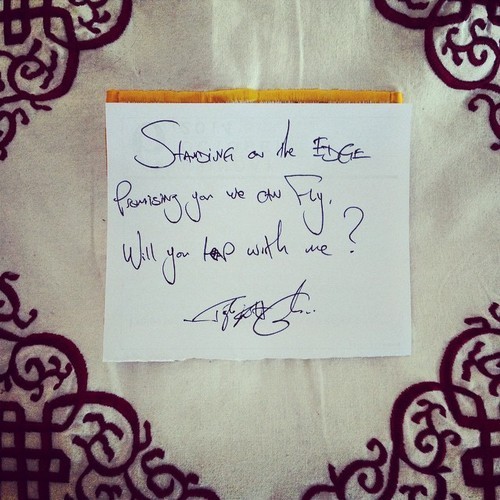 Standing on the EDGE
Promising you we can Fly.
Will you leap with me?